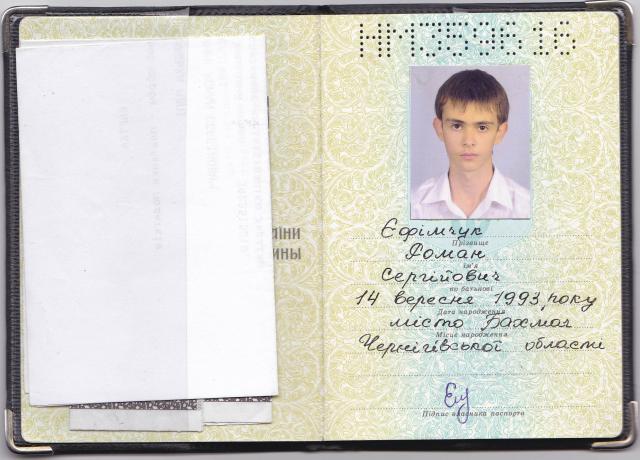 НМ359616
їни
ины
Єфімчук
Прізвище
Роман
ім'я
Сергійович
по батькові
14 вересня 1993 року
Дата народження
місто Бахмач
Місце народження
Чернігівської області
Підпис власника паспорта